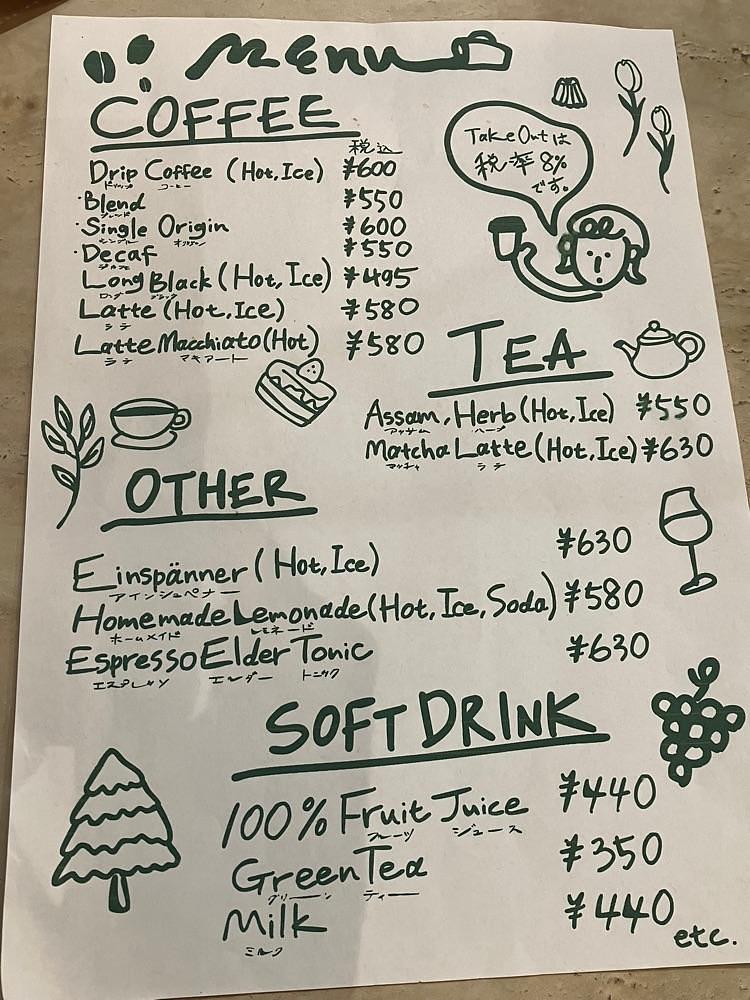 Menu
COFFEE
税込
Drip Coffee (Hot, Ice) ¥600
ドリップ コーヒー
・Blend ¥550
ブレンド
・Single Origin ¥600
シングル オリジン
・Decaf ¥550
デカフェ
Long Black (Hot, Ice) ¥495
ロング ブラック
Latte (Hot, Ice) ¥580
ラテ
Latte Macchiato (Hot) ¥580
ラテ マキアート
Take Outは
税率8%
です。
TEA
Assam, Herb (Hot, Ice) ¥550
アッサム ハーブ
Matcha Latte (Hot, Ice) ¥630
マッチャ ラテ
OTHER
Einspänner (Hot, Ice) ¥630
アインシュペナー
Homemade Lemonade (Hot, Ice, Soda) ¥580
ホームメイド レモネード
Espresso Elder Tonic ¥630
エスプレッソ エルダー トニック
SOFT DRINK
100% Fruit Juice ¥440
フルーツ ジュース
Green Tea ¥350
グリーン ティー
Milk ¥440
ミルク
etc.